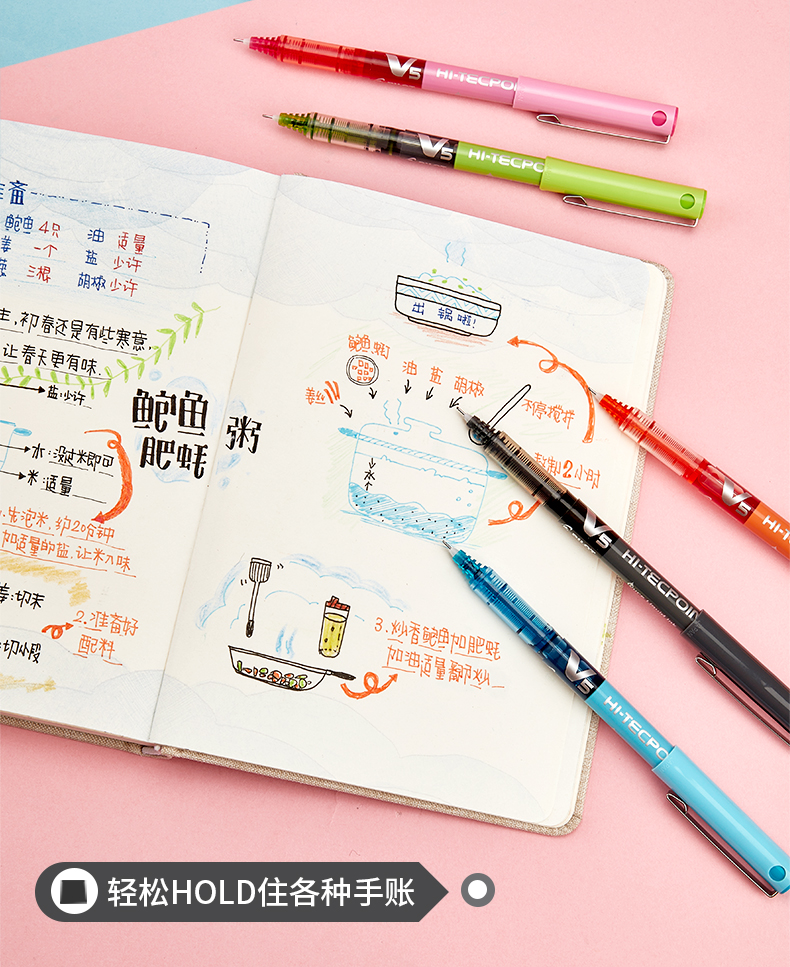 V5 HI-TECPOI
V5 HI-TECPO
准备
鲍鱼 4只 油 适量
姜 一个 盐 少许
葱 三根 胡椒 少许
初春还是有些寒意,
让春天更有味.
盐:少许
鲍鱼
肥蚝 粥
水:没过米即可
米:适量
先泡米,约20分钟
加适量的盐,让米入味
姜:切末
2.准备好
配料
切小段
出锅啦!
鲍鱼 蚝
姜丝
油 盐 胡椒
不停搅拌
熬制2小时
水
3.炒香鲍鱼加肥蚝
加油适量翻炒
V5 HI-T
V5 HI-TECPOIN
V5 HI-TECPO
轻松HOLD住各种手账